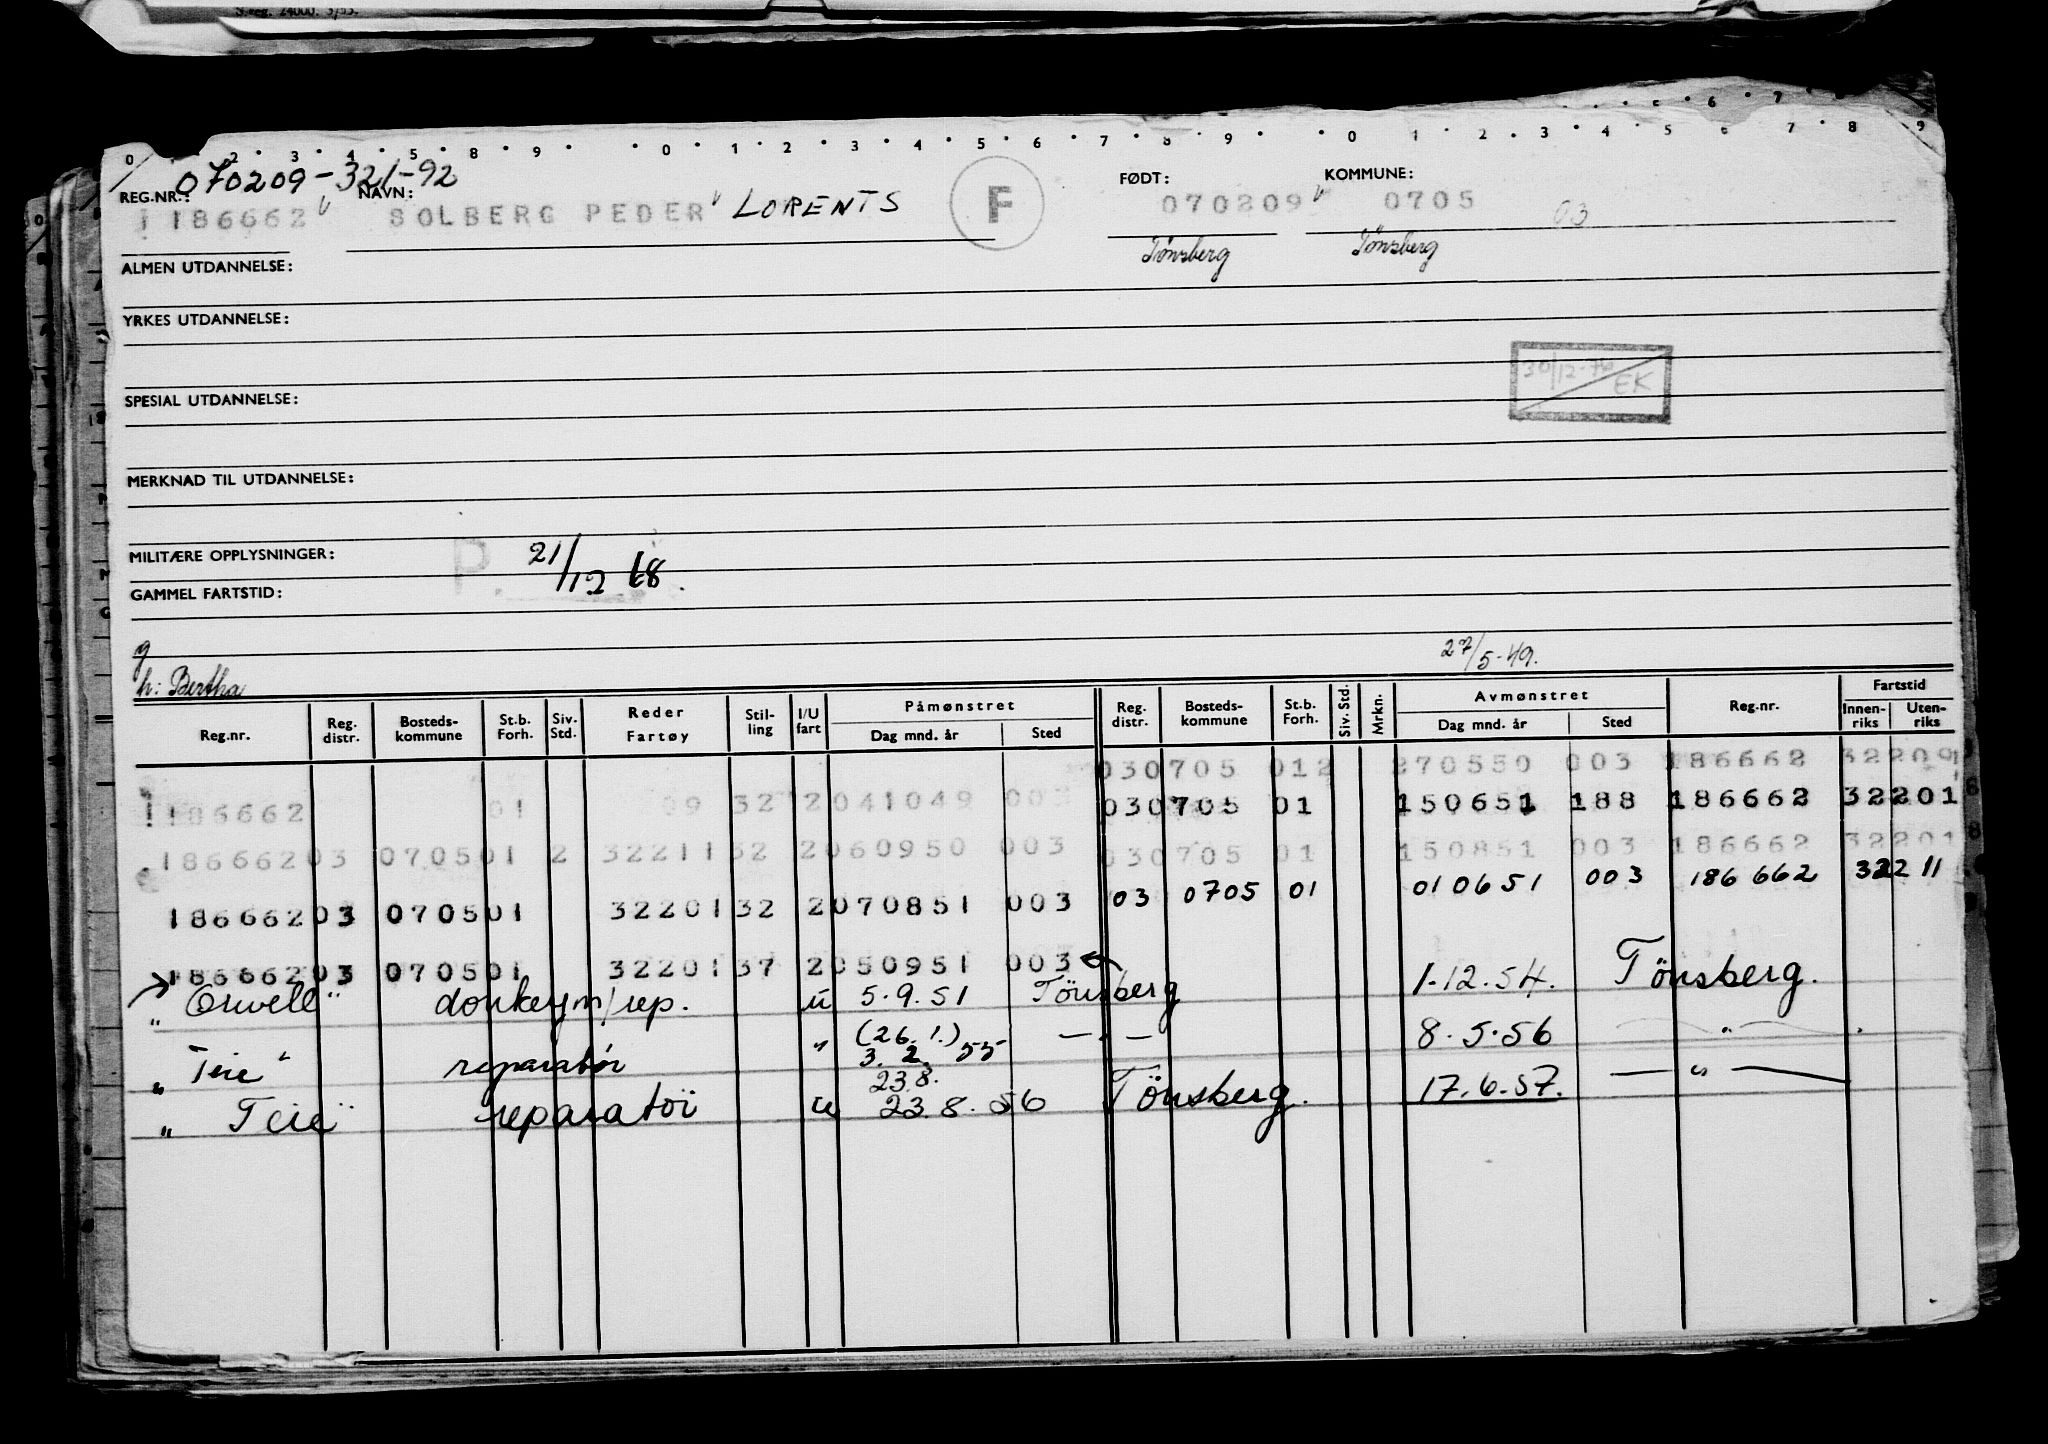 S.reg. 24000. 3/55.
0 2 3 4 5 8 9 0 1 2 3 4 5 6 7 8 9 0 1 2 3 4 5 6 7 8 9
070209-321-92
REG.NR.: NAVN: FØDT: KOMMUNE:
186662 SOLBERG PEDER LORENTS F 070209 0705 03
Tønsberg Tønsberg
ALMEN UTDANNELSE:
YRKES UTDANNELSE:
30/12-76 EK
SPESIAL UTDANNELSE:
MERKNAD TIL UTDANNELSE:
MILITÆRE OPPLYSNINGER: P. 21/12 68.
GAMMEL FARTSTID:
g
27/5-49.
h: Bertha
Reg.nr. Reg. distr. Bosteds-kommune St.b. Forh. Siv. Std. Reder Fartøy Stil-ling I/U fart Påmønstret Dag mnd. år Sted Reg. distr. Bosteds-kommune St.b. Forh. Siv. Std. Mrkn. Avmønstret Dag mnd. år Sted Reg.nr. Fartstid Innen-riks Uten-riks
030705 012 270550 003 186662 32209
186662 01 09 32 2041049 003 030705 01 150651 188 186662 32201
18666203 070501 2 32211 32 2060950 003 030705 01 150851 003 186662 32201
18666203 070501 32201 32 2070851 003 03 0705 01 010651 003 186 662 322 11
18666203 070501 32201 37 2050951 003
"Orwell" donkeym/rep. u 5.9.51 Tönsberg 1.12.54. Tönsberg.
"Teie" reparatör " (26.1.) 3.2. 55 — " — 8.5.56 — " —
23.8.
"Teie" reparatör u 23.8.56 Tönsberg. 17.6.57. — " —